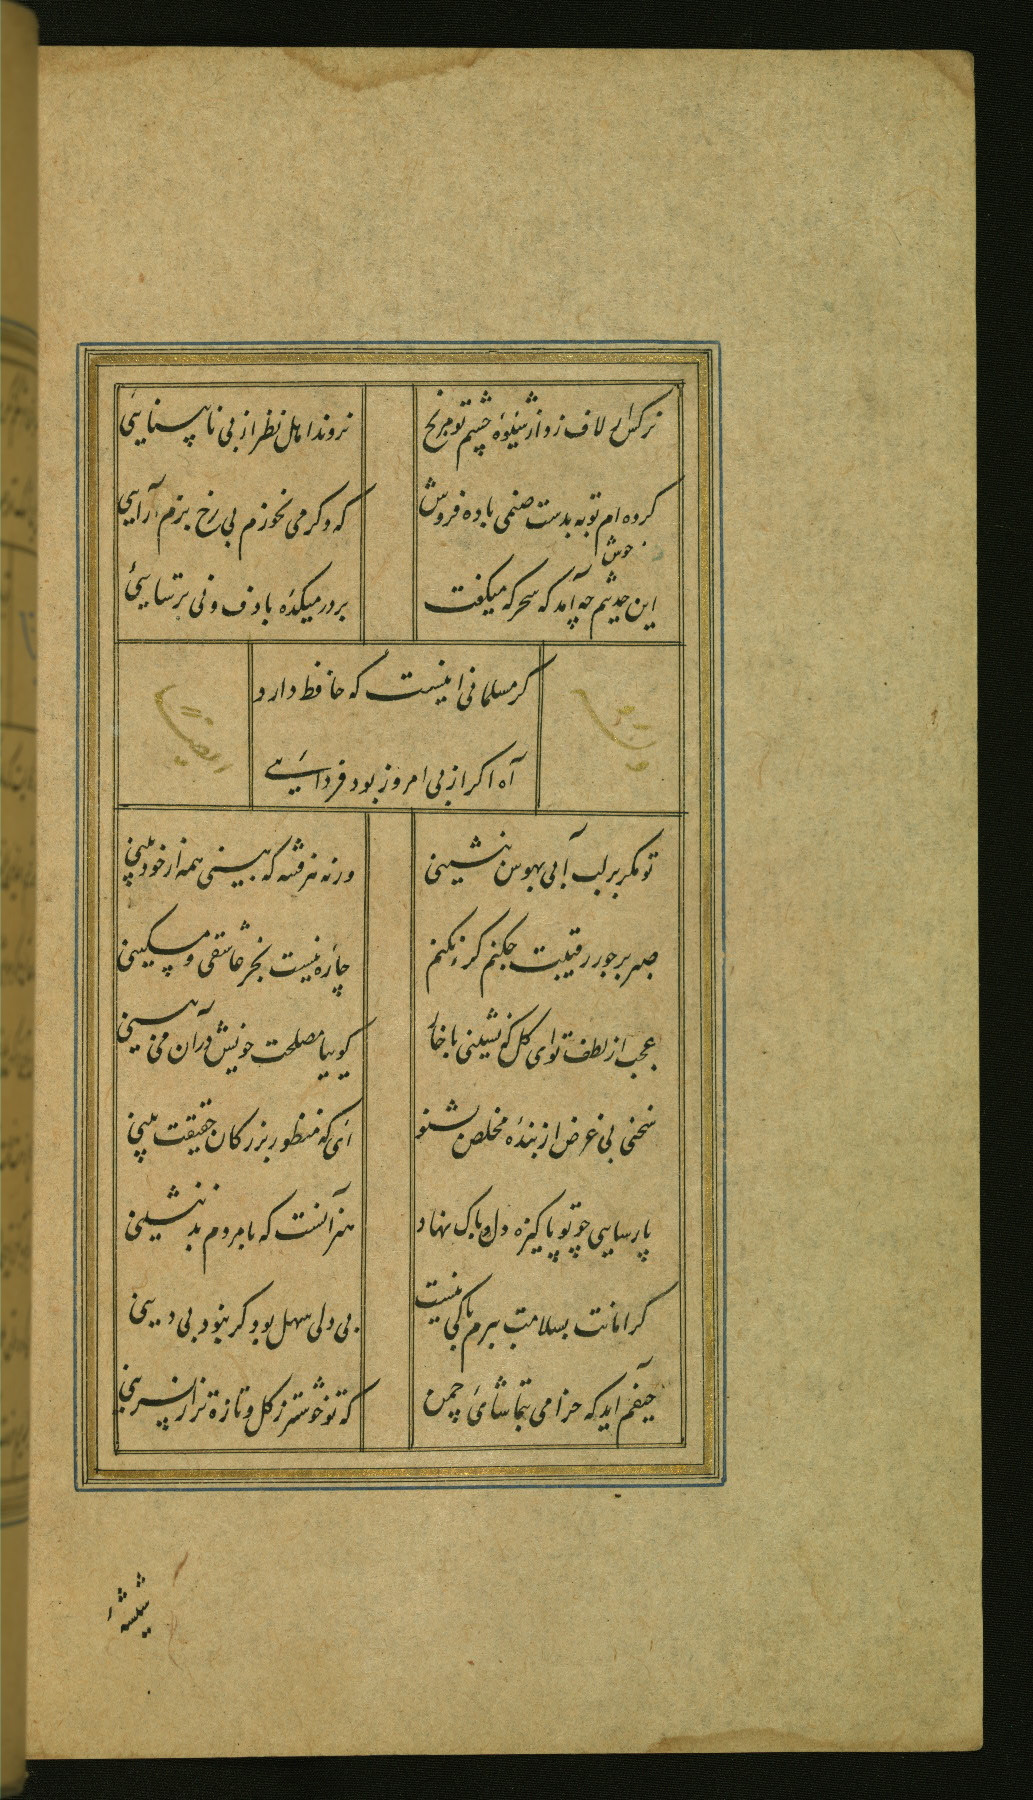 نرکس ار لاف زد از شیوۀ چشم تو مرنج
نروند اهل نظر از پی نابینایی
کرده ام توبه بدست صنمی باده فروش
که دکر می نخورم بی رخ بزم آرایی
خوش
این حدیثم چه آمد که سحرکه میکفت
بر در میکده با دف و نی ترسایی
کر مسلمانی اینست که حافظ دارد
آه اکر از پی امروز بود فردایی
تو مکر بر لب آبی بهوس بنشینی
ورنه هر فتنه که بینی همه از خود بینی
صبر بر جور رقیبت چکنم کر نکنم
چاره نیست بجز عاشقی و مسکینی
عجب از لطف تو ای کل که نشینی با خار
کوییا مصلحت خویش در آن می بینی
سخنی بی غرض از بندۀ مخلص بشنو
ای که منظور بزرکان حقیقت بینی
پارسایی چو تو پاکیزه دل و پاک نهاد
بهتر آنست که با مردم بد ننشینی
کر امانت بسلامت ببرم باکی نیست
بی دلی سهل بود کر نبود بی دینی
حیفم آید که خرامی بتماشای چمن
که تو خوشتر ز کل و تازه تر از نسرینی
شیشه